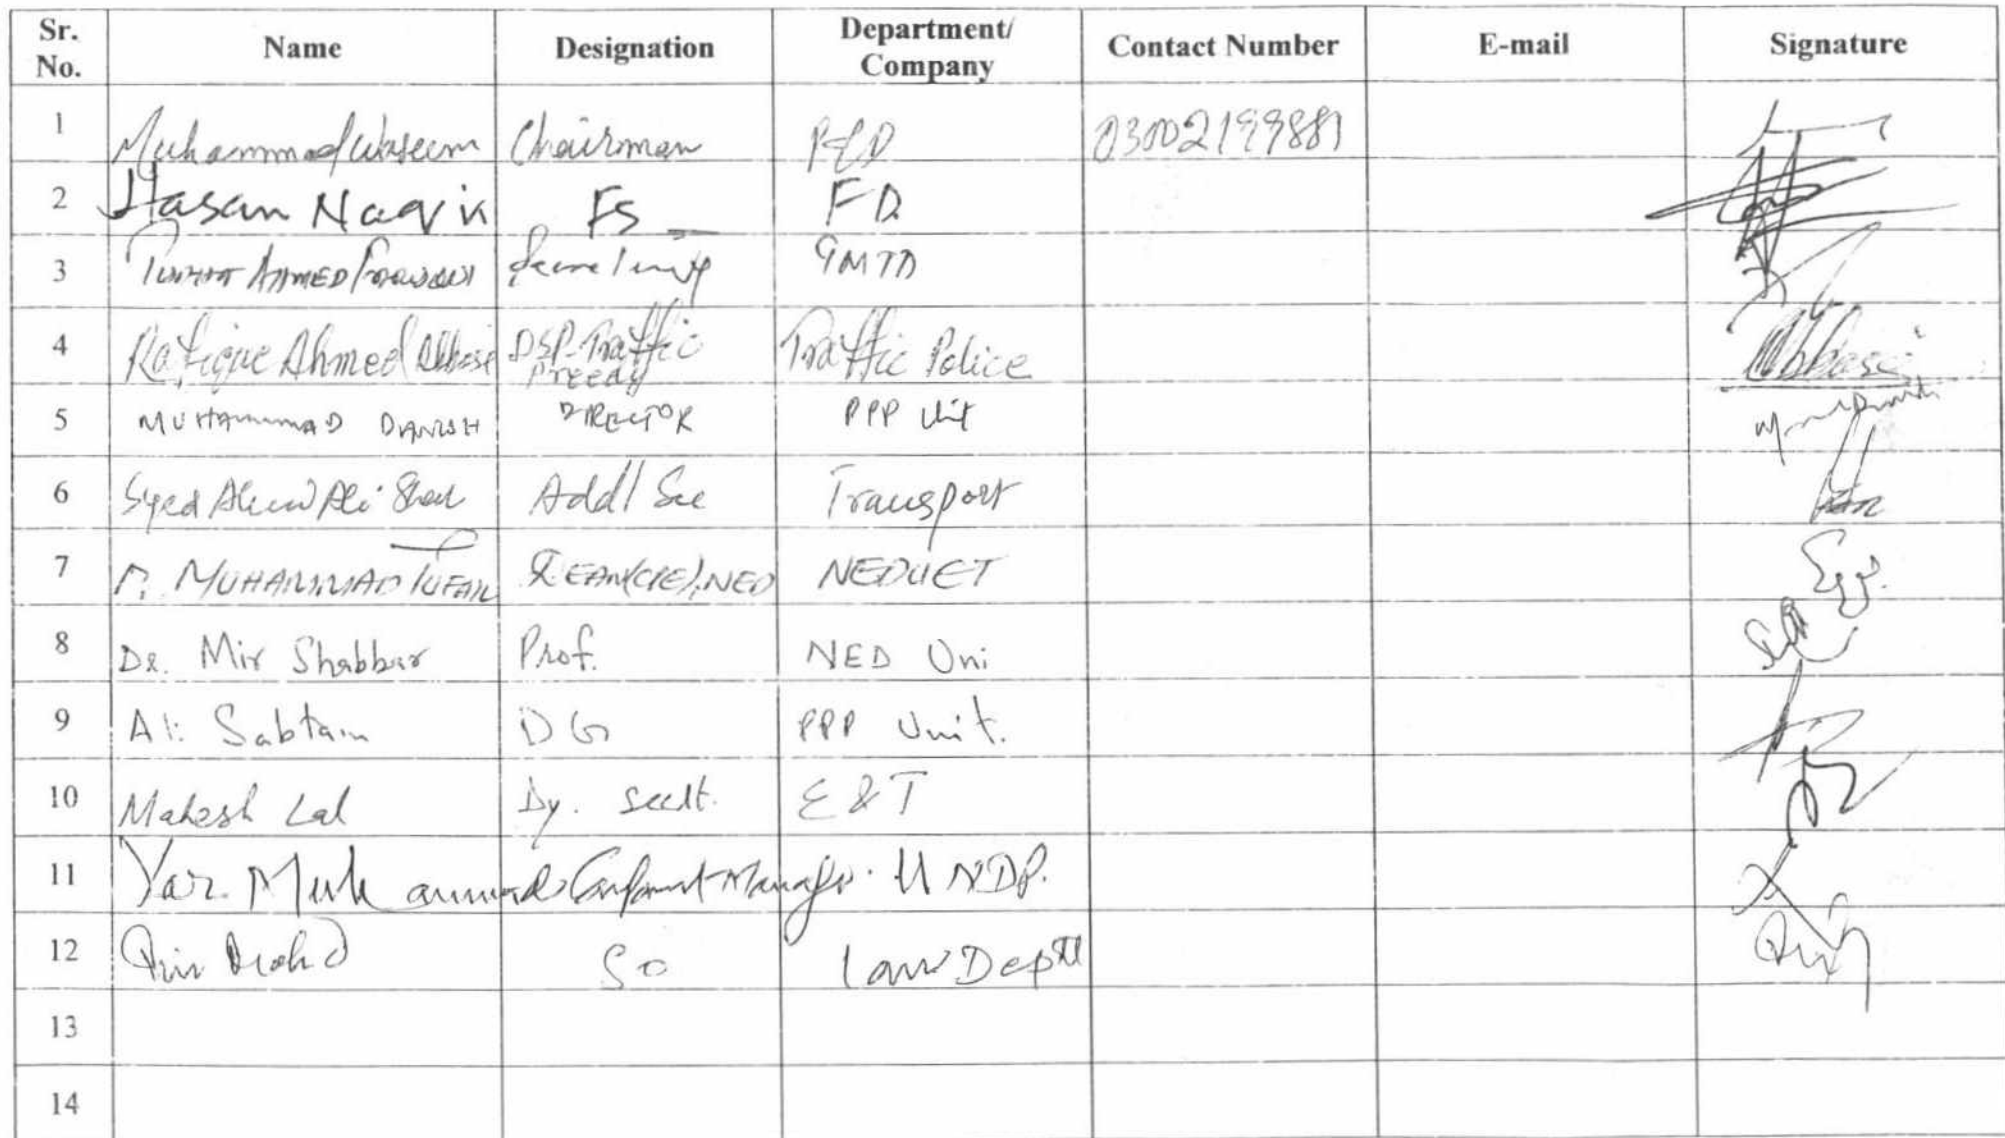 Sr. No. Name Designation Department/ Company Contact Number E-mail Signature
1 Muhammad Waseem Chairman P&D 03002199881
2 Hasan Naqvi FS FD
3 AHMED Secretary
4 Rafique Ahmed Abbasi DSP-Traffic Preedy Traffic Police Abbasi
5 MUHAMMAD DANISH DIRECTOR PPP Unit
6 Syed Ali Shah Addl Sec Transport
7 MUHAMMAD TUFAIL DEAN(CPE),NED NEDUET
8 Dr. Mir Shabbar Prof. NED Uni
9 Ali Sabtain DG PPP Unit.
10 Mahesh Lal Dy. Sectt. E&T
11 Yar Muhammad Manager UNDP.
12 Mohd SO Law Deptt
13
14